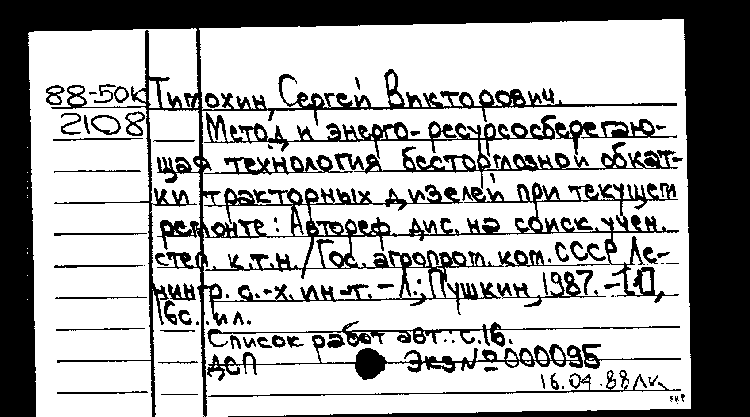 88-50к Тимохин, Сергей Викторович.
2108 Метод и энерго-ресурсосберегаю-
щая технология бестормозной обкат-
ки тракторных дизелей при текущем
ремонте: Автореф. дис. на соиск. учен.
степ. к.т.н. / Гос. агропром. ком. СССР Ле-
нингр. с.-х. ин-т. - Л.; Пушкин, 1987. - [1],
16с. ил.
Список работ авт.: с.16.
ДСП Экз № 000095
16.04.88